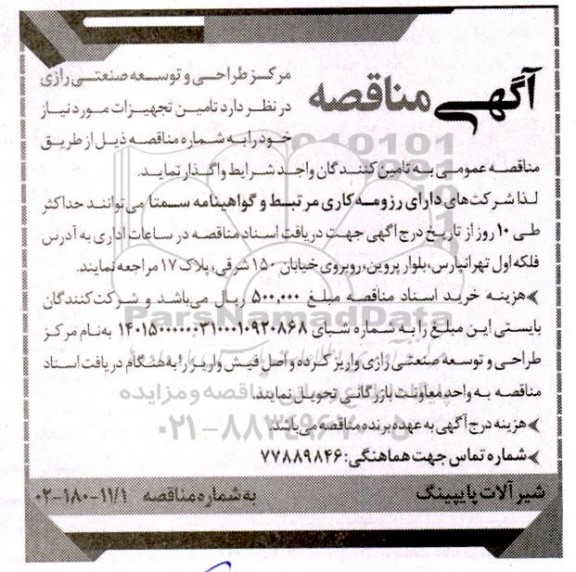 آگهی مناقصه
مرکز طراحی و توسعه صنعتی رازی
در نظر دارد تامین تجهیزات مورد نیاز
خود را به شماره مناقصه ذیل از طریق
مناقصه عمومی به تامین کنندگان واجد شرایط واگذار نماید.
لذا شرکت‌های دارای رزومه کاری مرتبط و گواهینامه سمتا می‌توانند حداکثر
طی ۱۰ روز از تاریخ درج آگهی جهت دریافت اسناد مناقصه در ساعات اداری به آدرس
فلکه اول تهرانپارس، بلوار پروین، روبروی خیابان ۱۵۰ شرقی، پلاک ۱۷ مراجعه نمایند.
هزینه خرید اسناد مناقصه مبلغ ۵۰۰,۰۰۰ ریال می‌باشد و شرکت‌کنندگان
بایستی این مبلغ را به شماره شبای ۱۴۰۱۵۰۰۰۰۰۰۳۱۰۰۰۱۰۹۲۰۸۶۸ به‌نام مرکز
طراحی و توسعه صنعتی رازی واریز کرده و اصل فیش واریز را به هنگام دریافت اسناد
مناقصه به واحد معاونت بازرگانی تحویل نمایند.
هزینه درج آگهی به عهده برنده مناقصه می‌باشد.
شماره تماس جهت هماهنگی: ۷۷۸۸۹۸۴۶
شیرآلات پایپینگ به شماره مناقصه ۱۱/۱-۱۸۰-۰۲
ParsNamadData